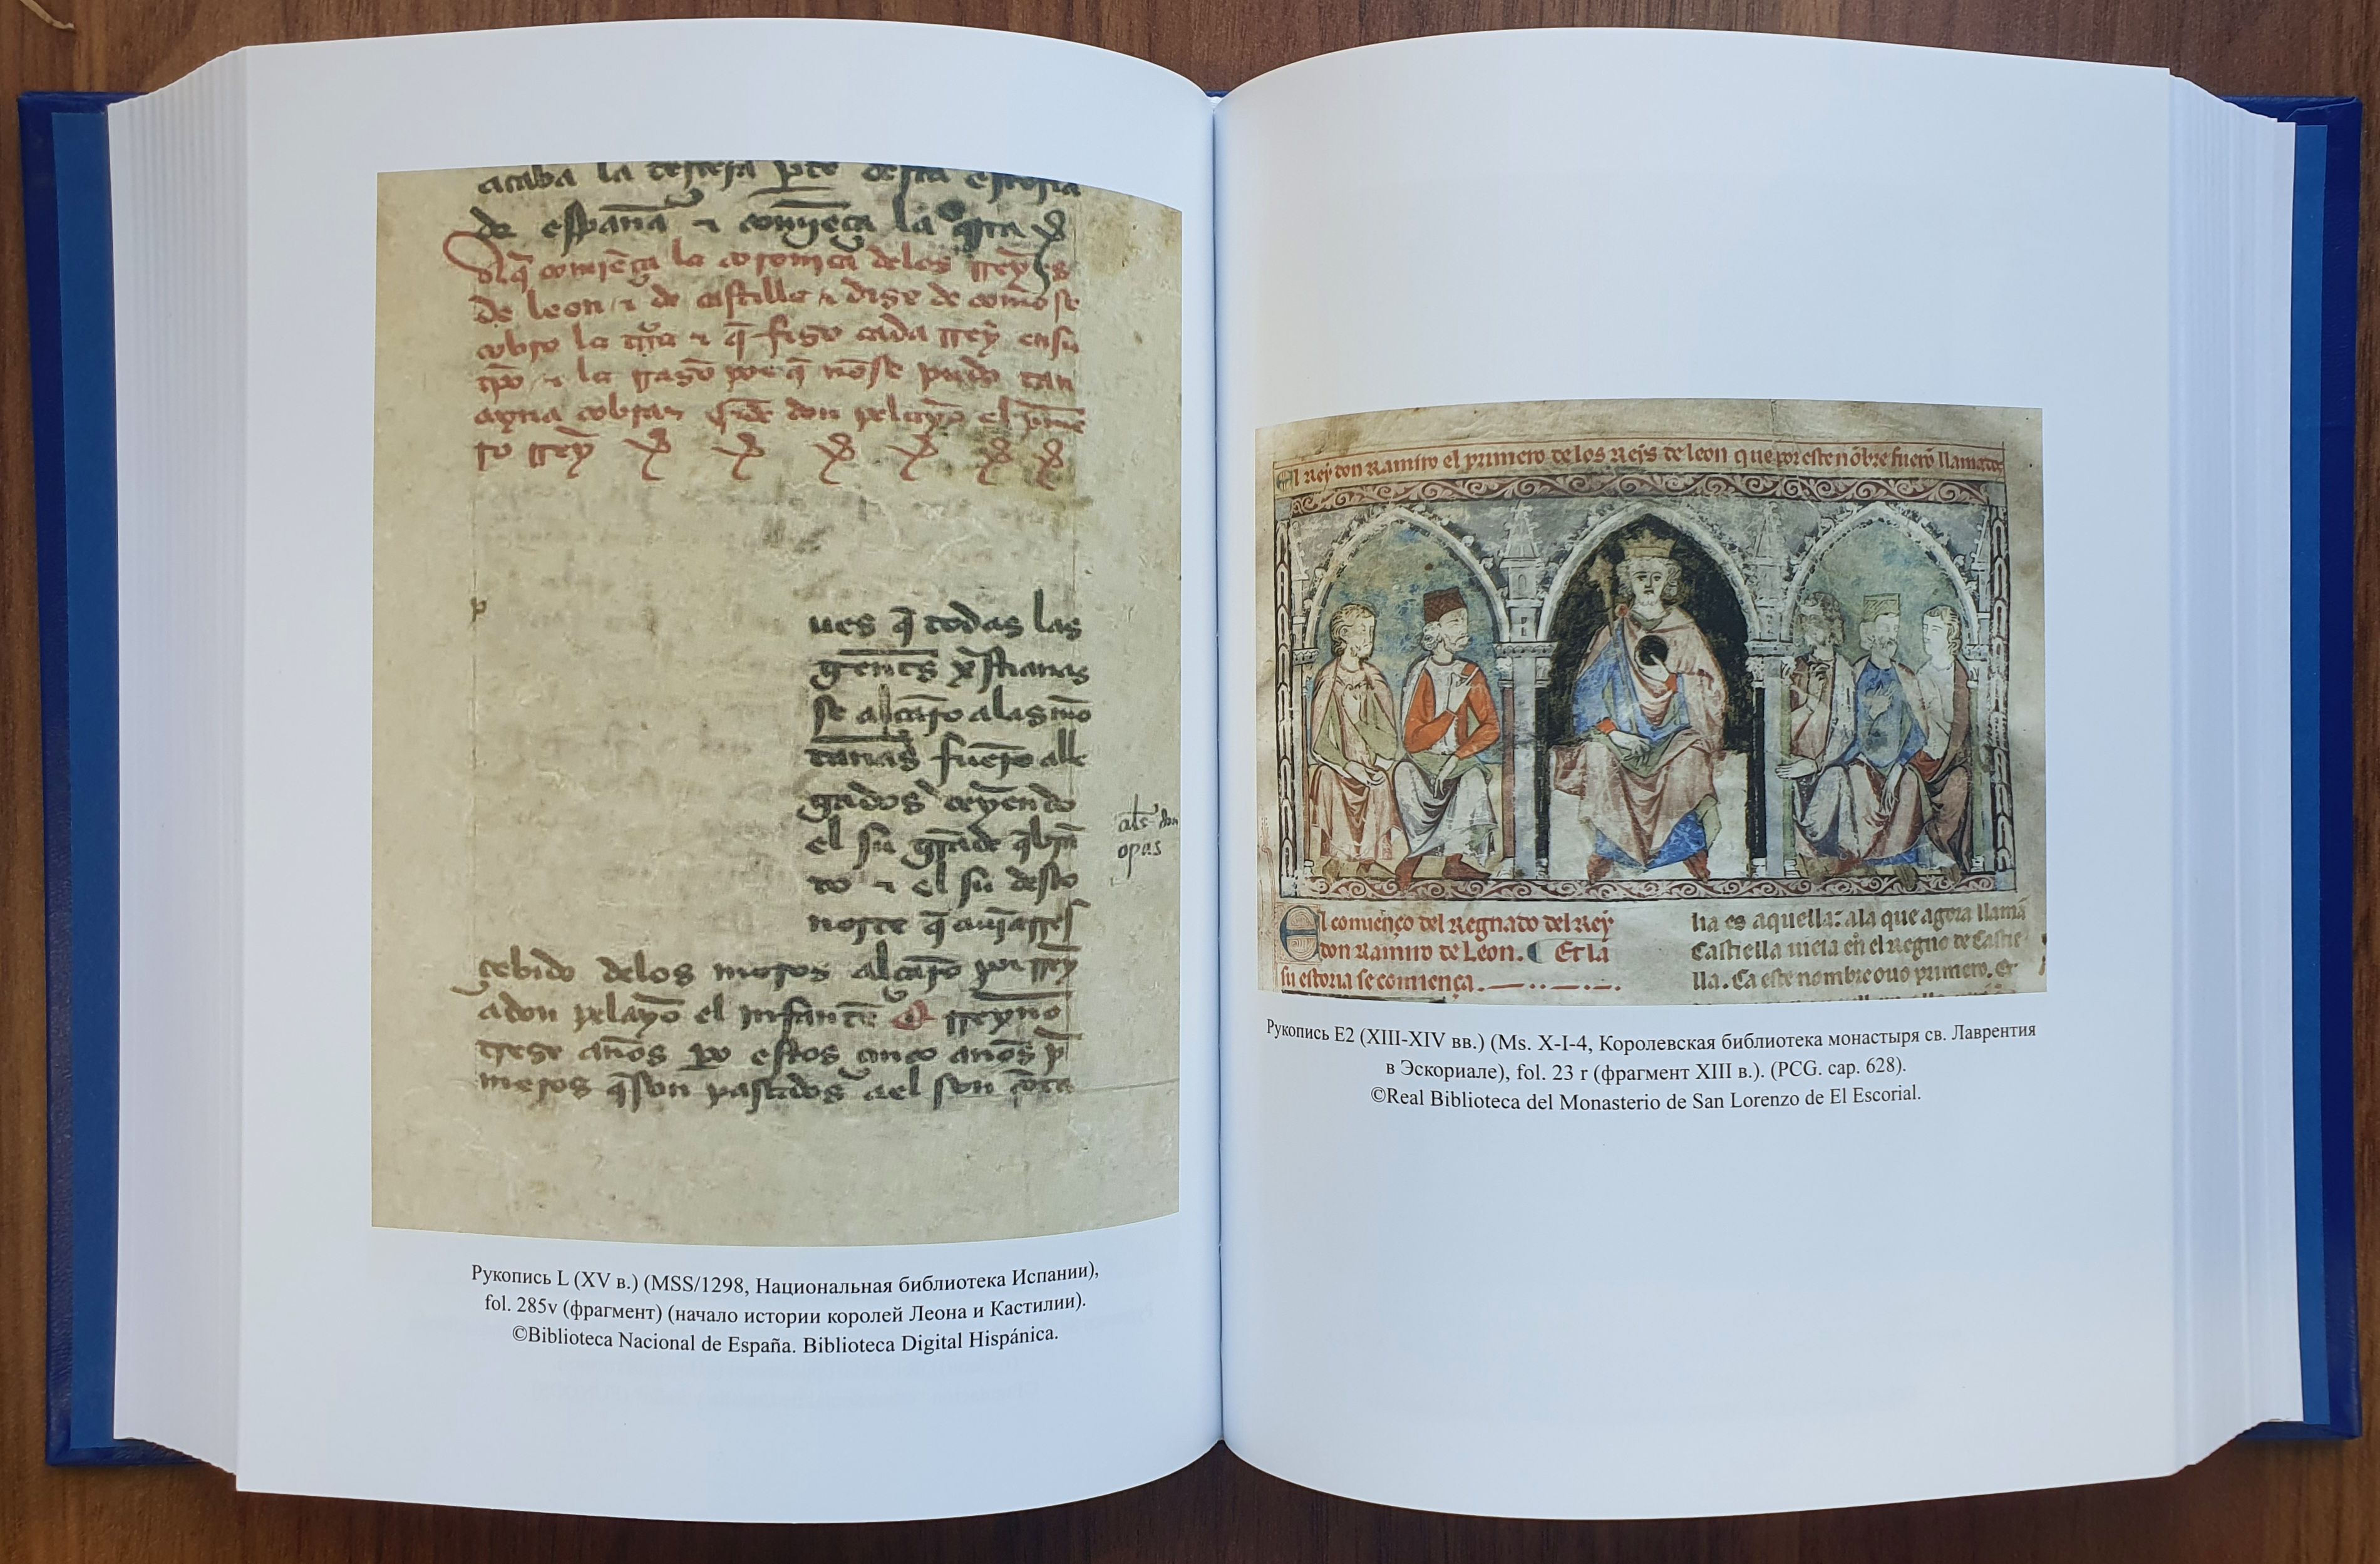 acaba la terçera pte desta estoria
de españa ⁊ comjença la qrta
Aq̃ comjença la coronjca delos rreyes
de leon ⁊ de castilla ⁊ dize de commo se
cobro la trra ⁊ q̃ fizo cada rrey en su
tpo ⁊ la rrazõ por q̃ nõ se pudo tan
ayna cobrar don pelayo el prime
ro rrey
p
ues q̃ todas las
gentes xp̃stianas
se alçarõ alas mõ
tanas fuerõ alle
gados veyendo
el su grãde q̃brã
to ⁊ el su desto
als don
opas
norte q̃ aujã rres
çebido delos moros alçarõ por rrey
a don pelayo el infante rreyno
treze años por estos çinco años p̃
meros q̃ son pasados ael son cõta
Рукопись L (XV в.) (MSS/1298, Национальная библиотека Испании),
fol. 285v (фрагмент) (начало истории королей Леона и Кастилии).
©Biblioteca Nacional de España. Biblioteca Digital Hispánica.
El Rey don Ramiro el primero de los Reys de leon que por este nõbre fuerõ llamados
El comienço del Regnado del Rey
don Ramiro de Leon. ¶ Et la
su estoria se comiença.
lla es aquella: ala que agora llamã
Castiella uieia en el Regno de Castie
lla. Ca este nombre ouo primero. Et
Рукопись E2 (XIII-XIV вв.) (Ms. X-I-4, Королевская библиотека монастыря св. Лаврентия
в Эскориале), fol. 23 r (фрагмент XIII в.). (PCG. cap. 628).
©Real Biblioteca del Monasterio de San Lorenzo de El Escorial.